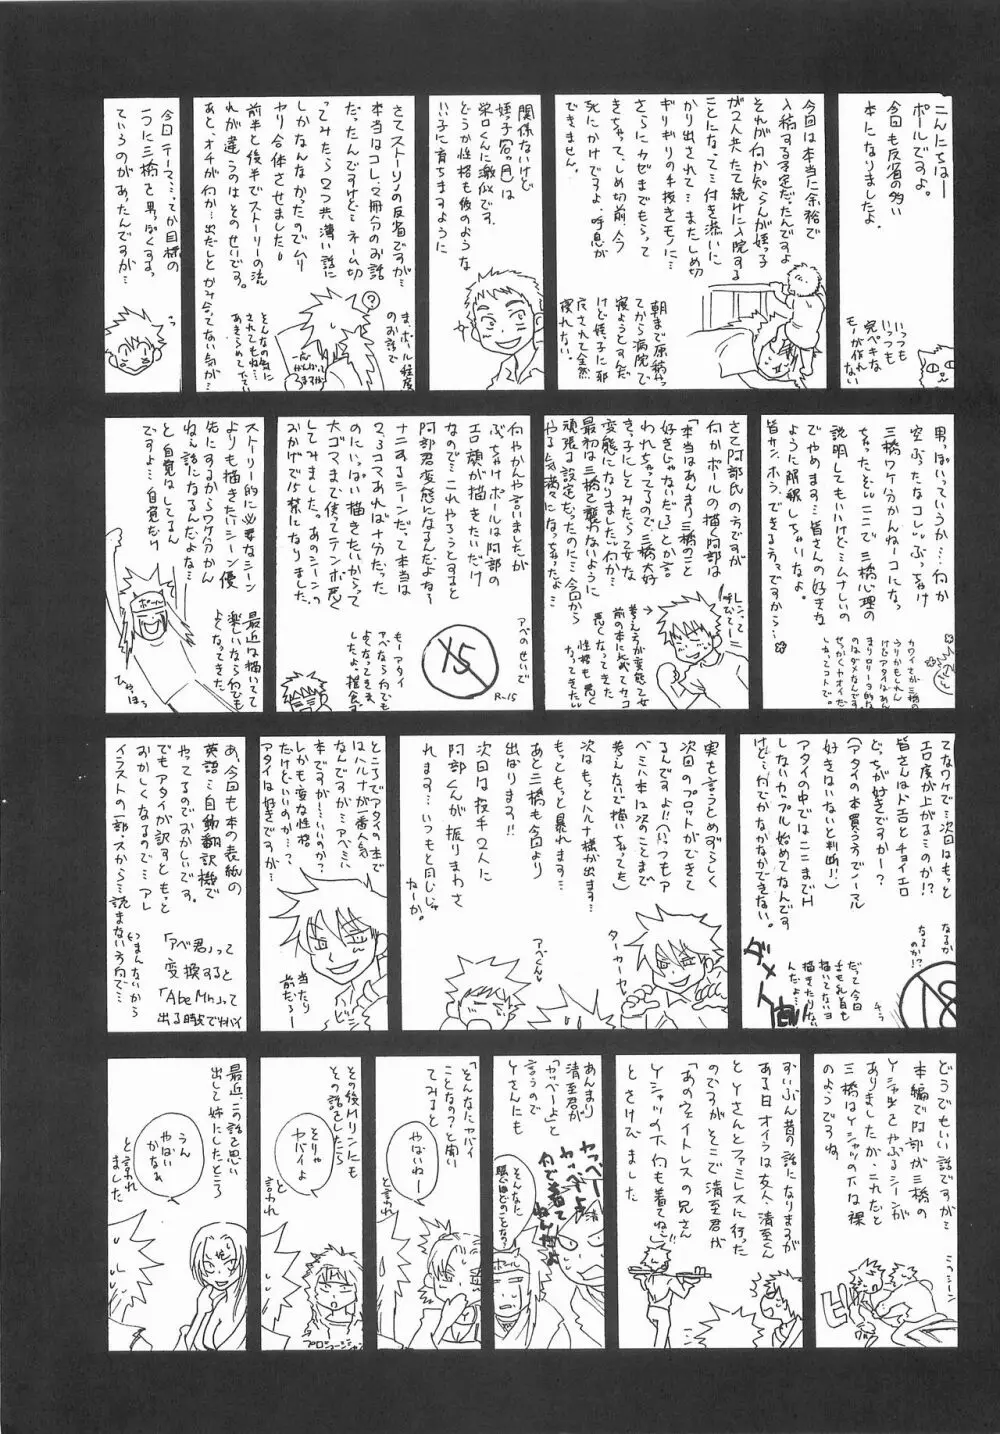 こんにちはー
ポールですよ。
今回も反省の多い
本になりましたよ。
いっつも
いっつも
完ペキな
モノが作れ
ない
今回は本当に余裕で
入稿する予定だったんですよ
それが何か知らんが姪っ子
が2人共たて続けに入院する
ことになって…付き添いに
かり出されて…またしめ切
ギリギリの手抜きモノに…
さらにカゼまでもらって
きちゃって、しめ切前、今
死にかけですよ、呼息が
できません。
朝まで原稿やっ
てから病院で
寝ようとすんだ
けど姪っ子に邪
魔されて全然
寝れない。
関係ないけど
姪っ子
栄口くんに激似です。
どうか性格も彼のような
いい子に育ちますように
さてストーリィの反省ですが…
本当はコレ、2冊分のお話
だったんですけど…ネーム切
ってみたら2つ共薄い話に
しかなんなかったのでムリ
ヤリ合体させました。
前半と後半でストーリーの流
れが違うのはそのせいです。
あと、オチが何か…出だしとかみ合ってない気が…
ま、ポール程度
のお話で
そんなの気に
されてもね…
あきらめてって
今回テーマ…ってか目標の
一つに三橋を男っぽくする。
ていうのがあったんですが…
男っぽいっていうか…何か
空ぶったなコレ。ぶっちゃけ
三橋ワケ分かんねーコになっ
ちゃったよ…ここで三橋心理の
説明してもいいけど…ムナしいの
でやめます…皆さんの好きな
ように解釈しちゃいなよ。
皆サン、ホラ、できる子ですから…
さて阿部氏の方ですが
何かポールの描く阿部は
「本当はあんまり三橋のこと
好きじゃないだろ」とか言
われちゃってるので、三橋大好
きっ子にしてみたらって女な
変態になりました。何か…
最初は三橋を襲わないように
頑張る設定だったのに…今回から
やる気満々になってたよ…
レンって
呼びてー
考え方が変態で女
前の本に比べてカッコ
悪くなってきた
性格も悪く
なってきたし
何やかんや言いましたが
ぶっちゃけポールは阿部の
エロ顔が描きたいだけ
なので…これやろうとすると
阿部君変態になるんだよな～
ナニするシーンだって本当は
2、3コマあれば十分だった
のにいっぱい描きたいからって
大ゴマまで使ってテンポ悪く
してみました。あのシーンの
おかげで15禁になりました。
アベのせいで
15
R-15
もーアタイ
アベなら何でも
よくなってきま
したよ。
ストーリー的に必要なシーン
よりも描きたいシーン優
先にするからワケ分かん
ねぇ話になるんだよな…
と自覚はしてるん
ですよ…自覚だけ
最近は描いてて
楽しいなら何でも
よくなってきた
ポール
ひゃほう
てなワケで…次回はもっと
エロ度が上がる…のか!?
皆さんはド忘とチョイエロ
どっちが好きですかー?
(アタイの本買う方でノーマル
好きはいないと判断!!)
アタイの中ではここまでH
しないカップル始めてなんです
けど…何でかなかなかできない。
なるか
なるか?
のか!?
だって今回
描いてないヨ
描きたりない
んだよ…
18
チラ
実を言うとめずらしく
次回のプロットができて
るんですよ!!(いっつもア
ベミハ本は次のことまで
考えないで描いちゃった)
次はもっとハルナ様が出ます…
もっともっと暴れます…
あと三橋も今回より
出ばります!!
次回は投手2人に
阿部くんが振りまわさ
れます…いつもと同じじゃ
ねーか。
ターカーヤー
アベくん
ところでアタイの本で
はハルナが一番人気
なんですが…アベミハ
本ですが…いいのか?
しかも変な性格
だけどいいのか…?
アタイは好きですが…
当たり
前だろー
あ、今回も本の表紙の
英語…自動翻訳機で
やってるのでおかしいです。
でもアタイが訳すともっと
おかしくなるので…アレ
イラストの一部。スから…読まない方向で…
つまんないから
「アベ君」って
変換すると
「Abe Mr.」って
出る時点でヤバイ
どうでもいい話ですが…
本編で阿部が三橋の
Yシャツをやぶるシーンが
ありましたが、これだと
三橋はYシャツの下は裸
のようですね。
ずいぶん昔の話になりますが
ある日オイラは友人、清至くん
とYさんとファミレスに行った
のですが、そこで清至君が
「あのウェイトレスの兄さん
Yシャツの下何も着てねー!!」
とさけびました
あんまり
清至君が
「ヤッベー」と
言うので
Yさんにも
ヤッベー
ヤッベーよ
何で着て
ねんだよ
清
そんなに
騒ぐほどのことな?
ポール
「そんなにヤバイ
ことなの?」と聞い
てみると
やないねー
と
言われ
その後Mリンにも
その話をしたら
そりゃ
ヤバイよ
と
言われ
最近、この話を思い
出して姉にしたところ
うん
ヤバい
かなぁ
と言われ
ました